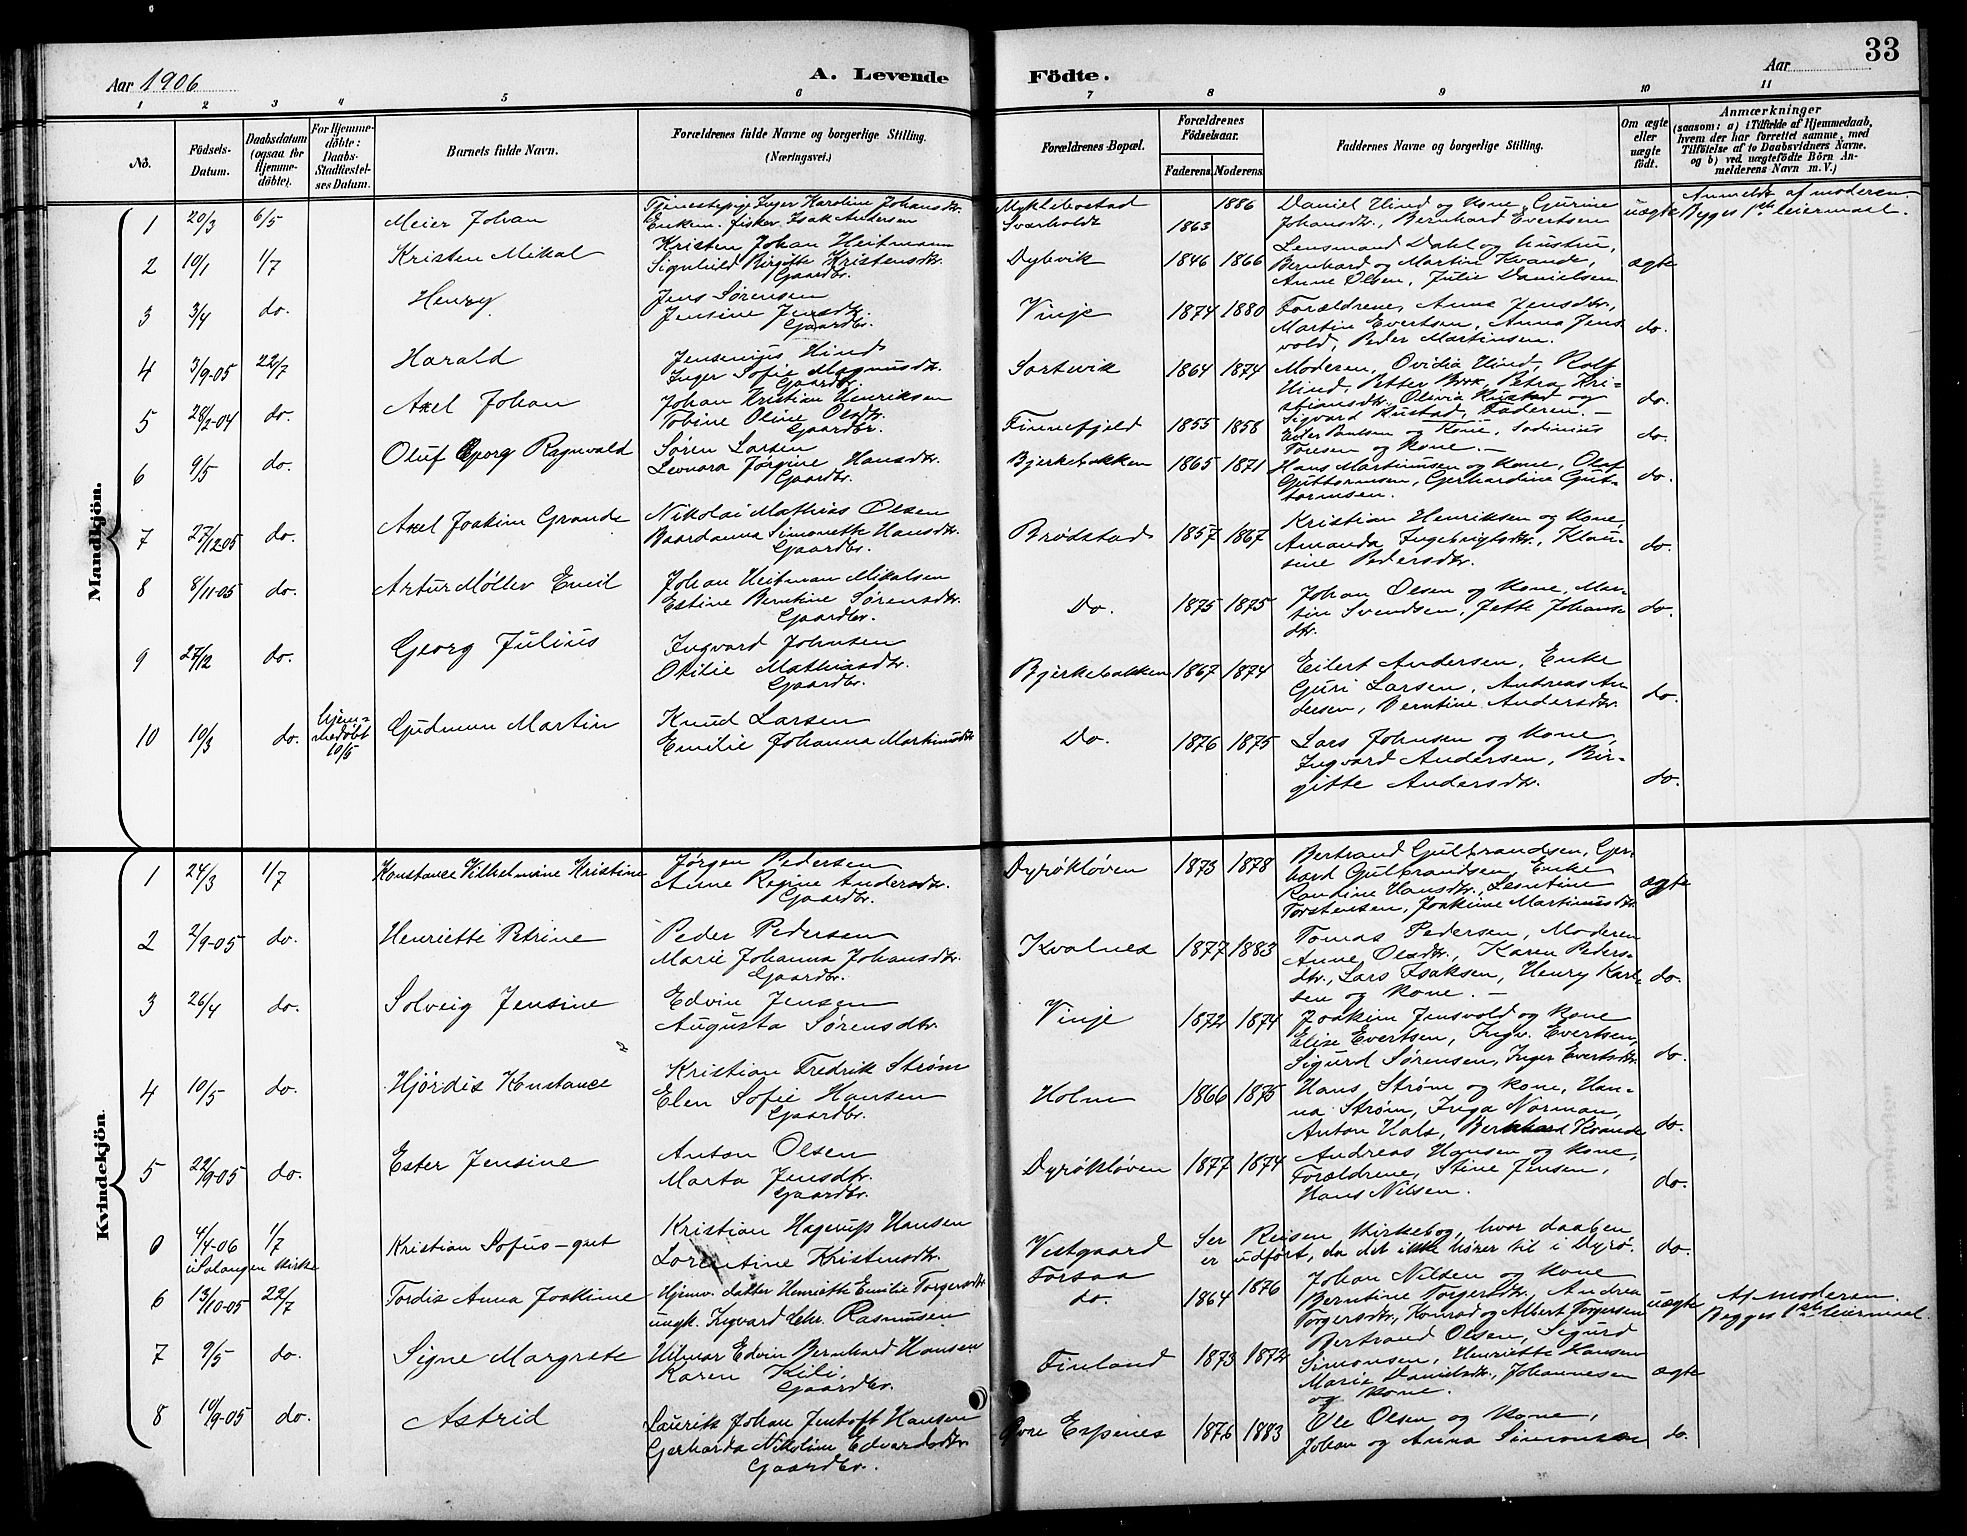 33
Aar 1906
A. Levende Födte.
Aar
1 2 3 4 5 6 7 8 9 10 11
No.
Födsels-Datum.
Daabsdatum (ogsaa for Hjemmedöbte).
For Hjemmedöbte: Daabs-Stadfæstelses Datum.
Barnets fulde Navn.
Forældrenes fulde Navne og borgerlige Stilling. (Næringsvei.)
Forældrenes Bopæl.
Forældrenes Födselsaar.
Faderens. Moderens.
Faddernes Navne og borgerlige Stilling.
Om ægte eller uægte födt.
Anmærkninger
(saasom: a) i Tilfælde af Hjemmedaab, hvem der har forrettet samme, med Tilföielse af to Daabsvidners Navne, og b) ved uægtefödte Börn Anmelderens Navn m.V.)
Mandkjön.
1 20/3 6/5 Meier Johan
Tjenestepige Inger Karoline Johansdtr.
Enkem. fisker Isak Andersen
Myklebostad
Sværholdt
1863 1886
Daniel Hind og Kone, Gurine
Johansdtr., Bernhard Evertsen
uægte
Anmeldt af moderen.
Begges 1ste leiermaal.
2 10/1 1/7 Kristen Mikal
Kristen Johan Heitmann
Signhild Birgitte Kristensdtr.
Gaardbr.
Dybvik 1846 1866
Lensmand Dahl og hustru,
Bernhard og Martin Kvande,
Anne Olsen, Julie Danielsen
ægte
3 3/4 do. Henry
Jens Sørensen
Jensine Jensdtr.
Gaardbr.
Vinje 1874 1880
Forældrene, Anna Jensdtr.,
Martin Evertsen, Anna Jens
vold, Peder Martinsen.
do.
4 3/9-05 22/7 Harald
Jensenius Hind
Inger Sofie Magnusdtr.
Gaardbr.
Sortvik 1864 1874
Moderen, Ovidia Hind, Rolf
Hind, Petter Bakk, Petra Kri-
stiansdtr., Olivia Rustad og
Sigvard Rustad, Faderen. -
do.
5 28/2-04 do. Axel Johan
Johan Kristian Henriksen
Tobine Oline Olsdtr.
Gaardbr.
Finnefjeld 1855 1858
Kone,
Tonsen og Kone. -
do.
6 9/5 do. Oluf Georg Ragnvald
Søren Larsen
Leonara Jørgine Hansdtr.
Gaardbr.
Bjerkebakken 1865 1871
Hans Martinussen og Kone, Oluf
Guttormsen, Gerhardine Gut-
tormsen.
do.
7 27/12 05 do. Axel Joakim Grande
Nikolai Mathias Olsen
Baardanna Simonette Hansdtr.
Gaardbr.
Brødstad 1857 1867
Kristian Henriksen og Kone,
Amanda Ingebrigtsdtr., Klau-
sine Pedersdtr.
do.
8 8/11-05 do. Artur Møller Emil
Johan Heitman Mikalsen
Estine Berntine Sørensdtr.
Gaardbr.
Do. 1875 1875
Johan Olsen og Kone, Mar-
tin Svendsen, Jette Johans
dtr.
do.
9 27/12 do. Georg Julius
Ingvard Johnsen
Otilie Mathiasdtr.
Gaardbr.
Bjerkebakken 1867 1874
Eilert Andersen, Enke
Guri Larsen, Andreas An
dersen, Berntine Andersdtr.
do.
10 10/3 do. hjem-
medøbt
10/5
Gudmun Martin
Knud Larsen
Emilie Johanna Martinusdtr.
Do. 1876 1875
Lars Johnsen og Kone,
Ingvard Andersen, Bir-
gitte Andersdtr.
do.
Kvindekjön.
1 24/3 1/7 Konstance Vilhelmine Kristine
Jørgen Pedersen
Anne Regine Andersdtr.
Gaardbr.
Dyrøkløven 1873 1878
Bertrand Gulbrandsen, Ger-
hard Gulbrandsen, Enke
Randine Hansdtr., Leontine
Torstensen, Joakime Martinusdtr.
ægte
2 2/9-05 do. Henriette Petrine
Peder Pedersen
Marie Johanna Johansdtr.
Gaardbr.
Kvalnes 1877 1883
Tomas Pedersen, Moderen
Anne Olsdtr., Karen Peders-
dtr., Lars Isaksen, Henry Karl-
sen og Kone. -
do.
3 26/4 do. Solveig Jensine
Edvin Jensen
Augusta Sørensdtr.
Vinje 1872 1874
Joakim Jensvold og Kone
Elise Evertsen, Ingv. Evertsen,
Sigurd Sørensen, Inger Evertsdtr.
do.
4 10/5 do. Hjørdis Konstance
Kristian Fredrik Strøm
Elen Sofie Hansen
Gaardbr.
Holm 1866 1875
Hans Strøm og Kone, Han-
na Strøm, Inga Norman,
Anton Hals, Bernhard Kvande
do.
5 22/9-05 do. Ester Jensine
Anton Olsen
Marta Jensdtr.
Gaardbr.
Dyrøkløven 1877 1874
Andreas Hansen og Kone,
Forældrene, Stine Jensen,
Hans Nilsen.
do.
0 4/4-06 1/7
i Salangen Kirke
Kristian Sofus - gut
Kristian Hagerup Hansen
Lorentine Kristensdtr.
Vestgaard
Se Reisen Kirkebog, hvor daaben
er udført, da det ikke hører til i Dyrø.
do.
6 13/10-05 22/7 Tordis Anna Joakime
Hjemv. datter Henriette Emilie Torgersdtr.
ungk. Ingvard Chr. Rasmussen
Forsaa
do. 1864 1876
Johan Nilsen og Kone
Berntine Torgersdtr., Andrea
Torgersdtr., Konrad og Albert Torgersen
uægte
Af moderen.
Begges 1ste leiermaal.
7 9/5 do. Signe Margrete
Hilmar Edvin Bernhard Hansen
Karen Kili,
Gaardbr.
Finland 1873 1872
Bertrand Olsen, Sigurd
Simonsen, Henriette Hansen
Marie Danielsdtr., Johannesen
og Kone.
ægte
8 10/9-05 do. Astrid
Laurits Johan Jentoft Hansen
Gerharda Nikoline Edvardsdtr.
Gaardbr.
Øvre Espenes 1876 1883
Ole Olsen og Kone,
Johan og Anna Simonsen
do.